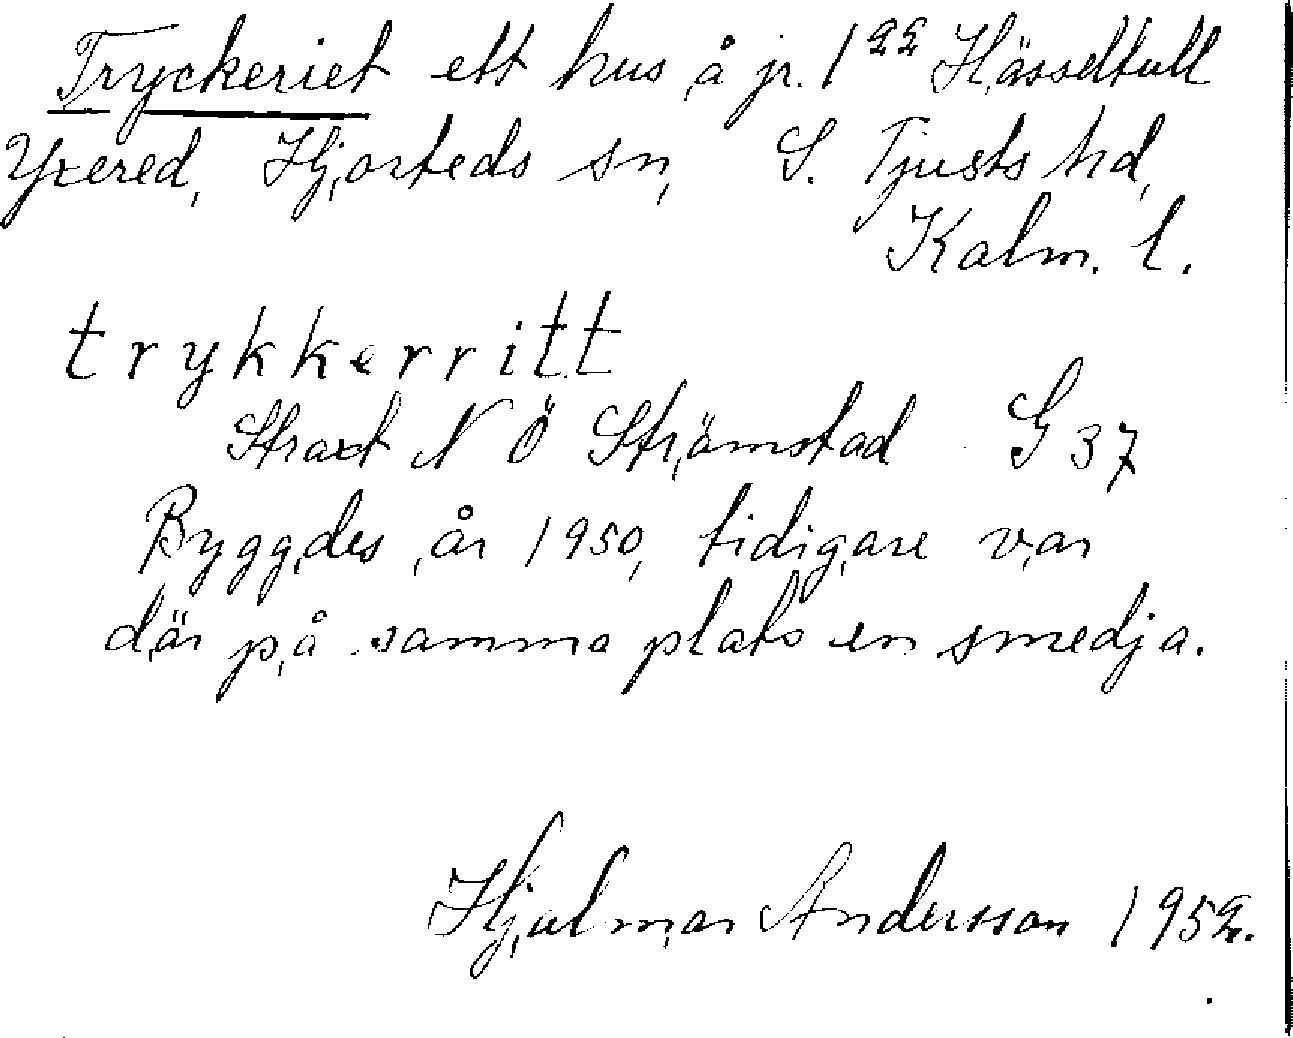 Tryckeriet ett hus å jr. 1²² Hässeltult
Yxered, Hjorteds sn, S. Tjusts hd,
Kalm. l.
trykkerritt
Straxt N Ö Strömstad G 37
Byggdes år 1950, tidigare var
där på samma plats en smedja.
Hjalmar Andersson 1952.